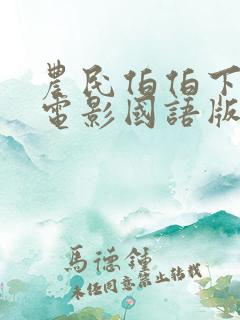 農民伯伯下
電影國語版
馬德鍾
未经同意禁止转载